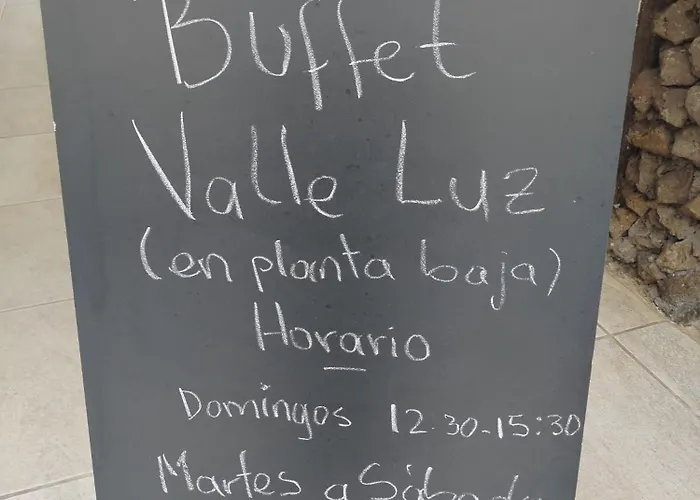 Buffet
Valle Luz
(en planta baja)
Horario
Domingos 12.30-15:30
Martes a Sábado